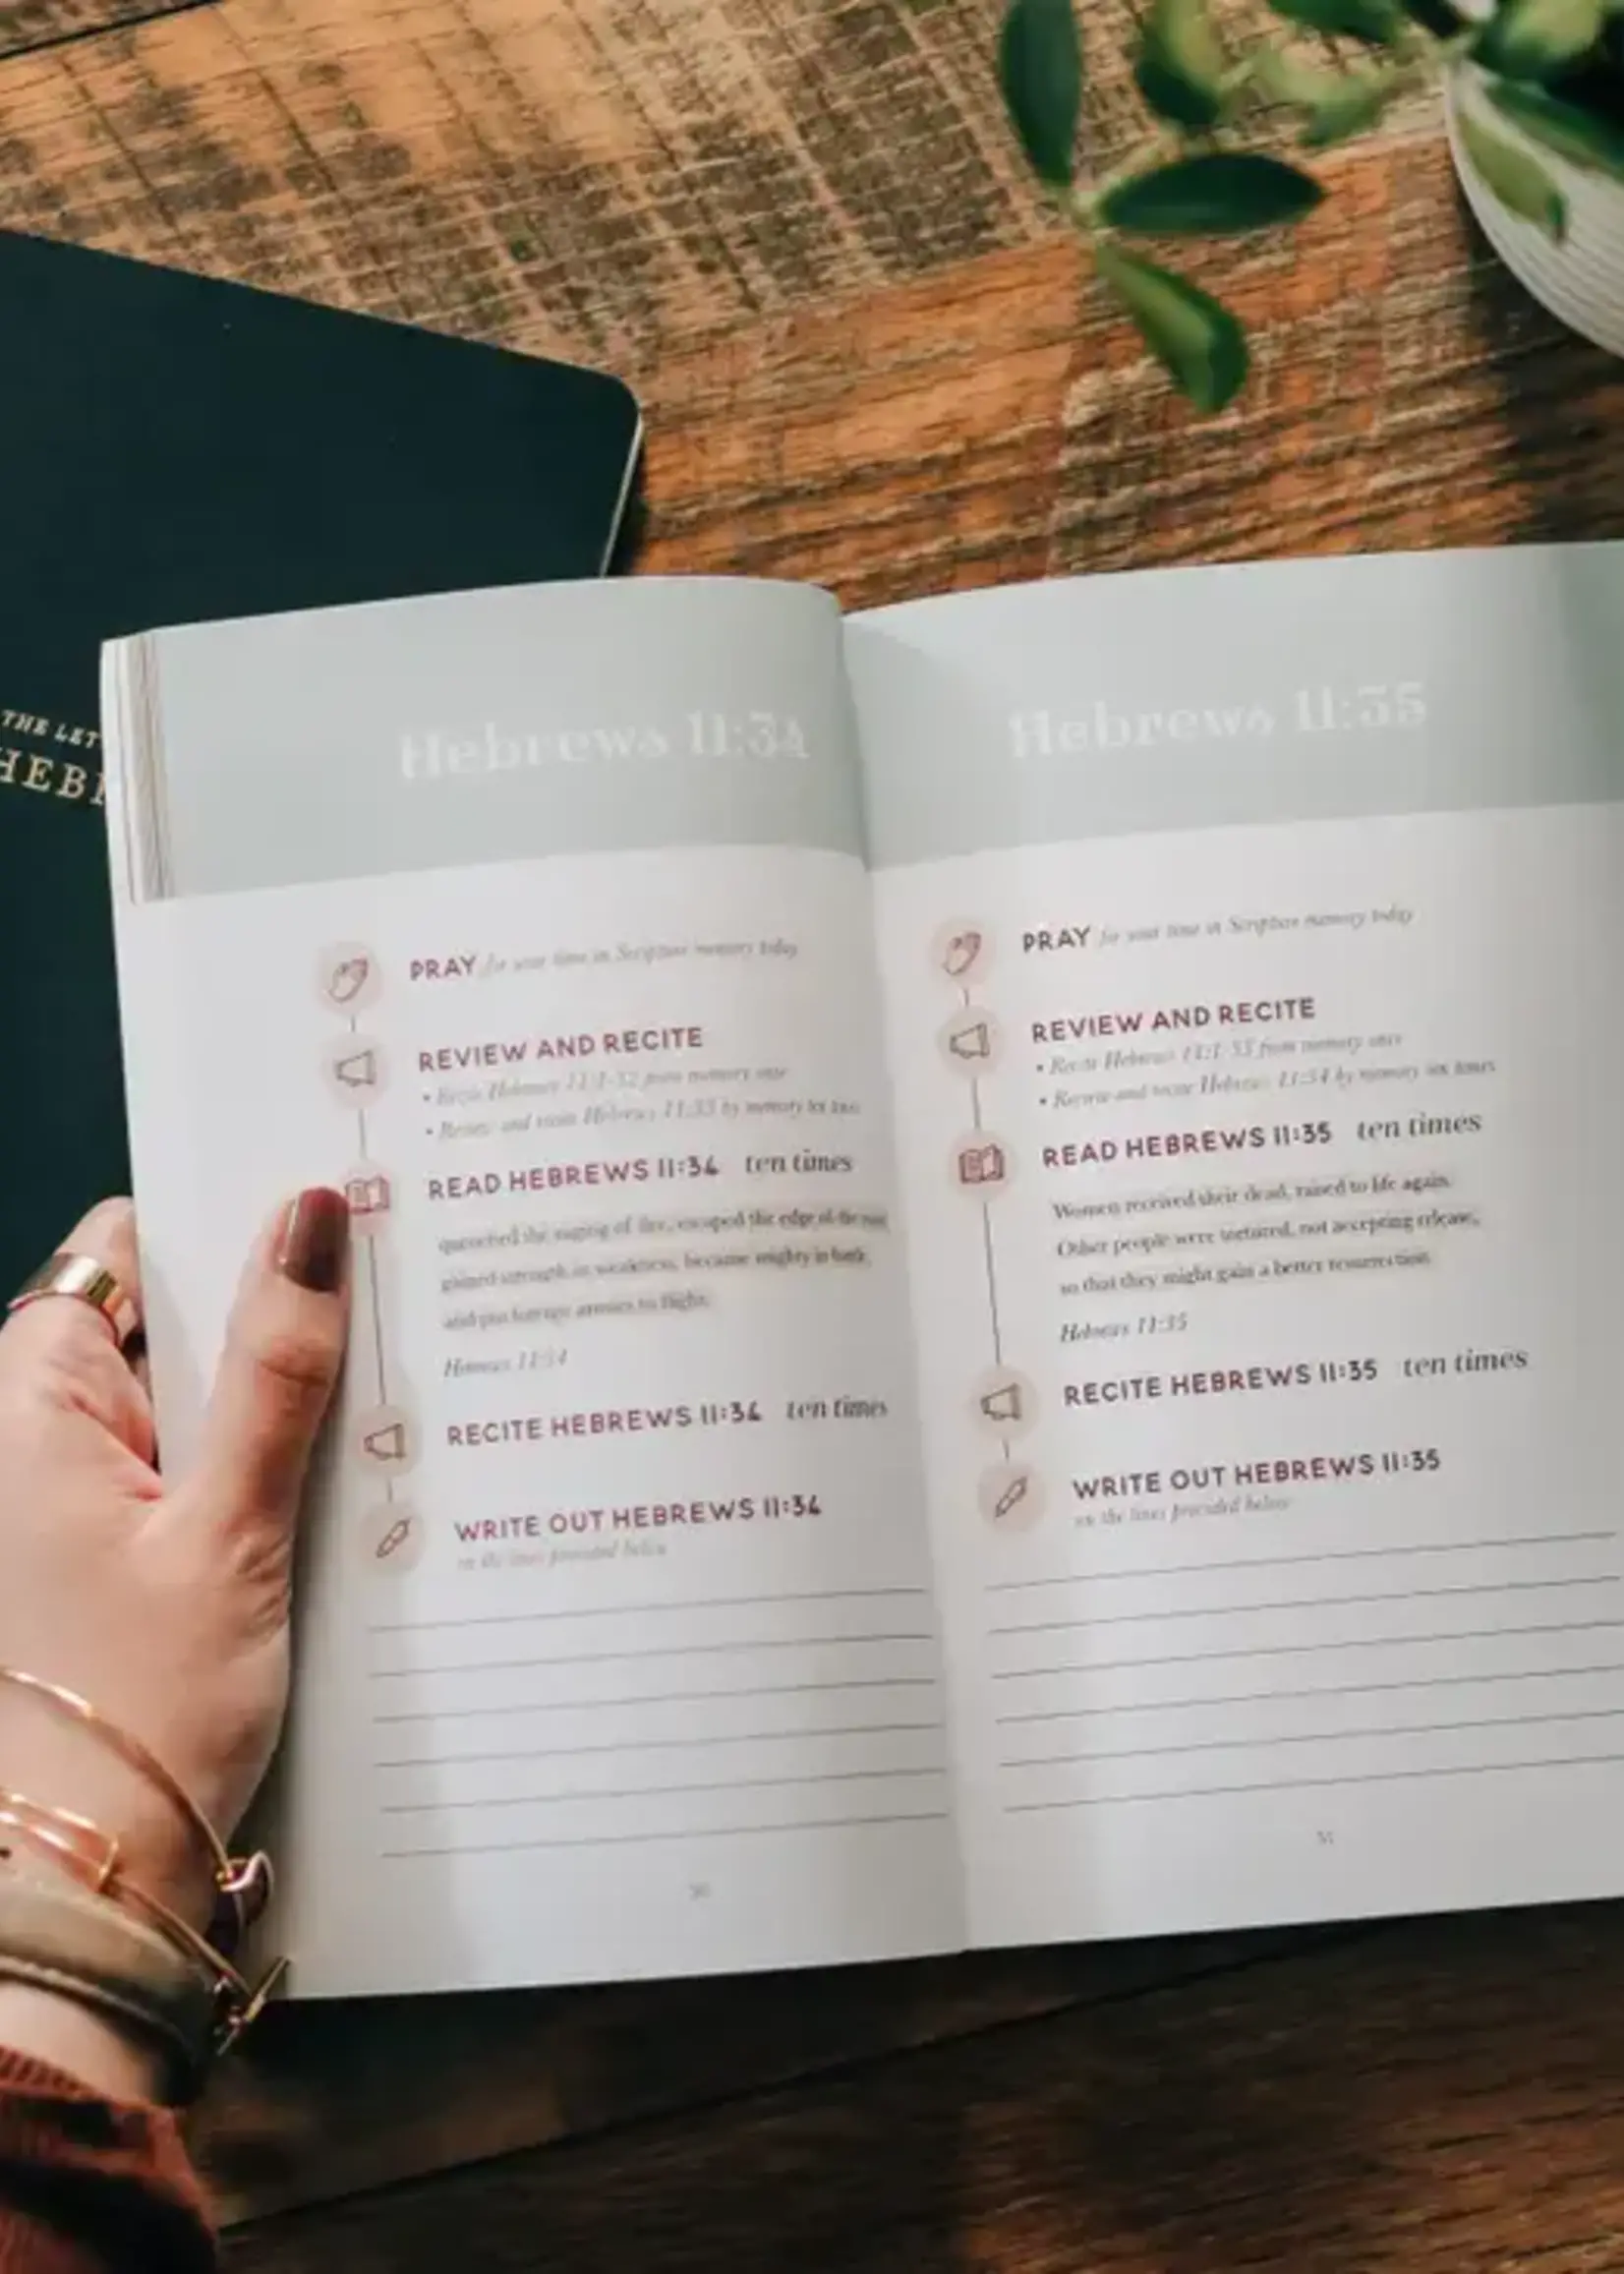 THE LET
HEBR
Hebrews 11:34
PRAY for your time in Scripture memory today
REVIEW AND RECITE
• Recite Hebrews 11:1-32 from memory once
• Review and recite Hebrews 11:33 by memory six times
READ HEBREWS 11:34 ten times
quenched the raging of fire, escaped the edge of the
gained strength in weakness, became mighty in battle,
and put foreign armies to flight.
Hebrews 11:34
RECITE HEBREWS 11:34 ten times
WRITE OUT HEBREWS 11:34
on the lines provided below
Hebrews 11:35
PRAY for your time in Scripture memory today
REVIEW AND RECITE
• Recite Hebrews 11:1-33 from memory once
• Review and recite Hebrews 11:34 by memory six times
READ HEBREWS 11:35 ten times
Women received their dead, raised to life again.
Other people were tortured, not accepting release,
so that they might gain a better resurrection.
Hebrews 11:35
RECITE HEBREWS 11:35 ten times
WRITE OUT HEBREWS 11:35
on the lines provided below